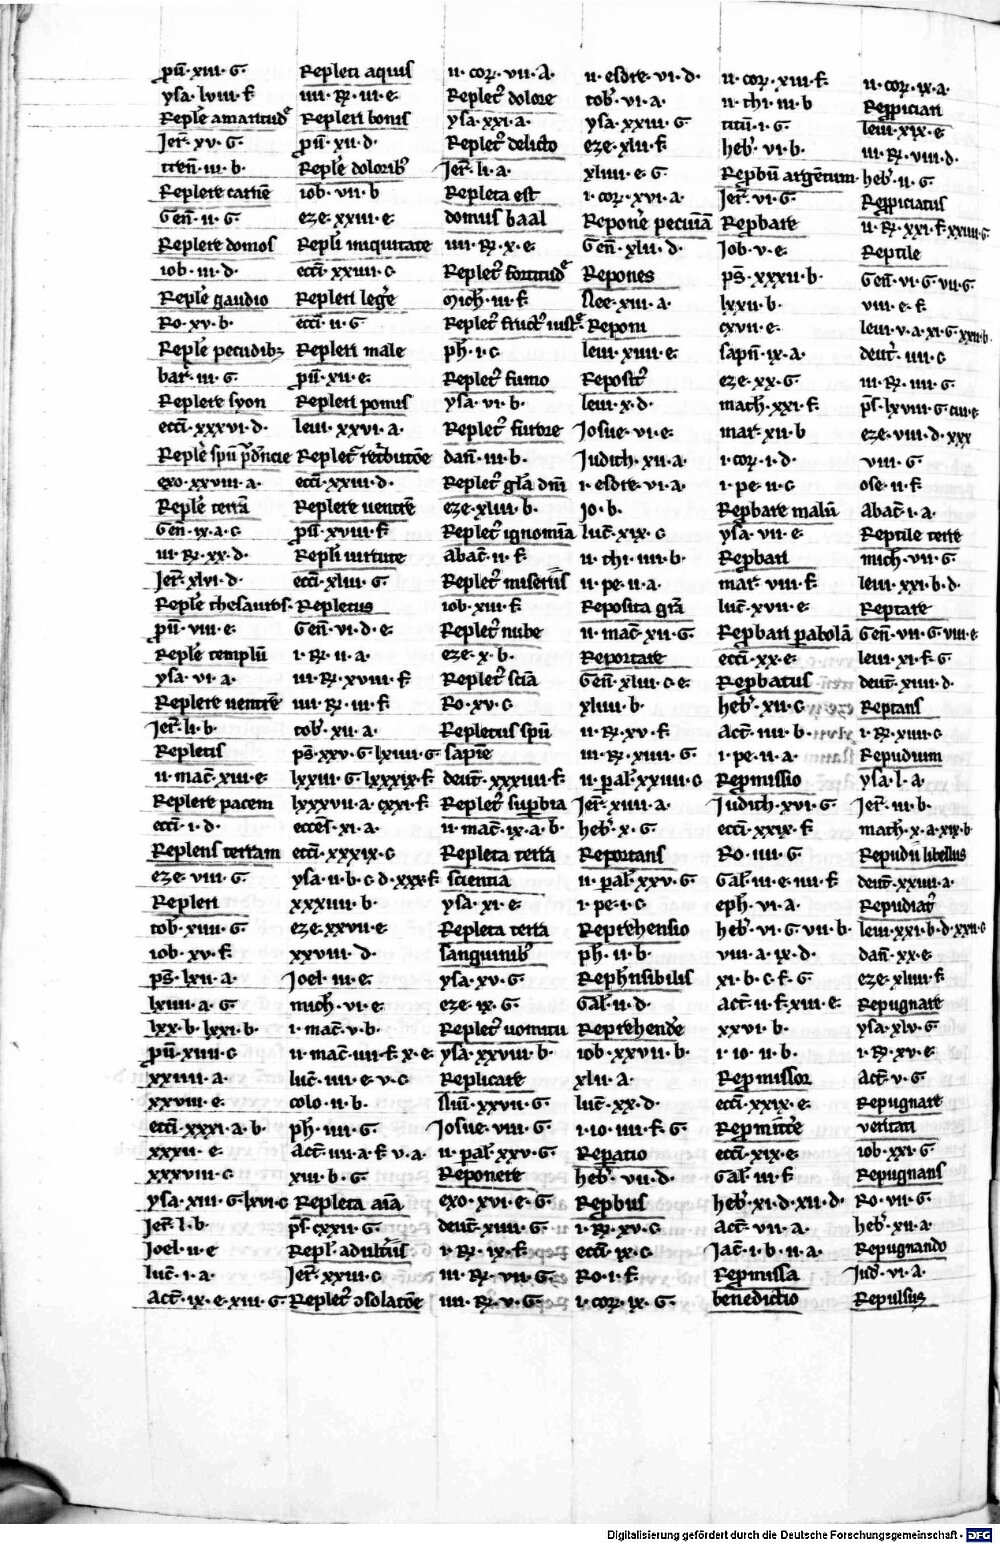 pū·xiii·G·
ysa·lviii·f
Reple amaritud
Jer·xv·G·
tren·iii·b·
Replere carnē
Gen̄·ii·G·
Replere domos
iob·iii·d·
Reple gaudio
Ro·xv·b·
Reple pecudibꝫ
bar·iii·G·
Replere syon
ecci·xxxvi·d·
Reple spū
exo·xxviii·a·
Reple terrā
Gen̄·ix·a·c·
iii·R·xx·d·
Jer·xlvi·d·
Reple thesauros·
pū·viii·e·
Reple templū
ysa·vi·a·
Replere uentrē
Jer·li·b·
Repletis
ii·mac̄·xiii·e
Replere pacem
ecci·i·d·
Replens terram
eze·viii·G·
Repleri
tob·xiiii·G·
iob·xv·f·
ps̄·lxii·a·
lxiiii·a·G·
lxx·b·lxxi·b·
pū·xiiii·c
xxiiii·a·
xxviii·e·
ecci·xxxi·a·b·
xxxii·e·
xxxviii·c·
ysa·xiii·G·lxvi·c
Jer·l·b·
Joel·ii·e
luc̄·i·a·
Act̄·ix·e·xiii·G·
Repleri aquis
iiii·R·iii·e·
Repleri bonis
pū·xii·d·
Reple dolorib
iob·vii·b
eze·xxiii·e·
Repli iniquitate
ecci·xxiiii·c
Repleri lege
ecci·ii·G·
Repleri male
pū·xii·e·
Repleri pomis
leui·xxvi·a·
ecci·xxiii·d·
Replere uentrē
pū·xviii·f·
Repli uirtute
ecci·xliii·G·
Repletus
Gen̄·vi·d·e·
i·R·ii·a·
iii·R·xviii·f·
iiii·R·iii·f·
tob·xii·a·
ps̄·xxv·G·lxiiii·G·
lxxiii·G·lxxxix·f·
lxxxvii·a·cxxi·f·
eccēs·xi·a·
ecci·xxxix·c
ysa·ii·b·c·d·xxx·f
xxxiiii·b·
eze·xxvii·e·
xxviii·d·
Joel·iii·e·
mich·vi·e·
i·mac̄·v·b·
ii·mac̄·iiii·f·x·e·
luc̄·iiii·e·v·c·
colo·ii·b·
ph·iiii·G·
Act̄·iiii·a·f·v·a·
xiii·b·G·
Repleta aīa
ps·cxxii·G·
Repl·
Jer·xxiii·c·
Replet
ii·cor·vii·a·
Replet dolore
ysa·xxi·a·
Replet delicto
Jer·li·a·
Repleta est
domus baal
iiii·R·x·e·
Replet fortitud
Mich·iii·f·
Replet fruct iust
ph·i·c
Replet fumo
ysa·vi·b·
Replet furore
dan̄·iii·b·
Replet glā dnī
eze·xliii·b·
Replet ignominia
abac̄·ii·f·
Replet miseriis
iob·xiiii·f·
Replet nube
eze·x·b·
Replet sciā
Ro·xv·c
Repletus spū
sapie
deut̄·xxxiiii·f·
Replet supbia
ii·mac̄·ix·a·b·
Repleta terra
scientia
ysa·xi·e·
Repleta terra
sanguinib
ysa·xv·G·
eze·ix·G·
Replet uomitu
ysa·xxviii·b·
Replicare
Nū·xxvii·G·
Josue·viii·G·
ii·pal·xxv·G·
Reponere
exo·xvi·e·G·
deut̄·xiiii·G·
i·R·ix·f·
iii·R·vii·G·
iiii·R·v·G·
ii·esdre·vi·d·
tob·vi·a·
ysa·xxiii·G
eze·xlii·f·
xliiii·e·G
i·cor·xvi·a·
Repone pecuīā
Gen̄·xlii·d·
Repones
Nee·xiii·a·
Reponi
leui·xiiii·e·
Reposit
leui·x·d·
Josue·vi·e·
Judith·xii·a·
i·esdre·vi·a·
Jo·b·
luc̄·xix·c·
ii·thi·iiii·b·
ii·pe·ii·a·
Reposita grā
ii·mac̄·xii·G·
Reportare
Gen̄·xliii·c·e·
xliiii·b·
ii·R·xv·f·
iii·R·xiiii·G·
ii·pal·xxviii·c·
Jer·xiiii·a·
heb·x·G·
Reportans
ii·pal·xxv·G·
i·pe·i·c·
Reprehensio
ph·ii·b·
Rephnsibilis
Gal·ii·d·
Reprehende
iob·xxvii·b·
xlii·a·
luc̄·xx·d·
i·io·iiii·f·G·
Repatio
heb·vii·d·
Repbus
i·R·xv·c·
ecci·ix·c·
Ro·i·f·
i·cor·ix·G·
ii·cor·xiii·f·
ii·thi·iii·b
titū·i·G·
heb·vi·b·
Repbū argentum·
Jer·vi·G·
Repbare
Job·v·e·
ps̄·xxxii·b·
lxxii·b·
cxvii·e·
sapn̄·ix·a·
eze·xx·G·
math·xxi·f·
mar·xii·b
i·cor·i·d·
i·pe·ii·c
Repbare malū
ysa·vii·e·
Repbari
mar·viii·f·
luc̄·xvii·e·
Repbari pabolā
ecci·xx·e·
Repbatus
heb·xii·c·
Act̄·iiii·b·
i·pe·ii·a·
Repmissio
Judith·xvi·G·
ecci·xxix·f·
Ro·iiii·G·
Gal·iii·e·iiii·f·
eph·vi·a·
heb·vi·G·vii·b·
viii·a·ix·d·
xi·b·c·f·G·
Act̄·ii·f·xiii·e·
xxvi·b·
i·io·ii·b·
Repmissor
ecci·xxix·e·
Repmitte
ecci·xix·e·
Gal·iii·f·
heb·xi·d·xii·d·
Act̄·vii·a·
Jac̄·i·b·ii·a·
Repmissa
benedictio
ii·cor·ix·a·
leui·xix·e·
iii·R·viii·d·
heb·ii·G·
ii·R·xxi·f·xxiiii·G·
Reptile
Gen̄·vi·G·vii·G·
viii·e·f·
leui·v·a·xi·G·xxii·b·
deut·iiii·c
iii·R·iiii·G·
ps̄·lxviii·G·ciii·e·
eze·viii·d·xxx
viii·G·
ose·ii·f·
Abac̄·i·a·
Reptile terre
mich·vii·G·
leui·xxi·b·d·
Reptare
Gen̄·vii·G·viii·e·
leui·xi·f·G·
deut̄·xiiii·d·
Reptans
i·R·xiiii·c·
Repudium
ysa·l·a·
Jer·iii·b·
math·x·a·xix·b
Repudii libellus
deut̄·xxiiii·a·
Repudiat
leui·xxi·b·d·xxii·c
dan̄·xx·e·
eze·xliiii·f·
Repugnare
ysa·xlv·G·
i·R·xv·e·
Act̄·v·G·
Repugnare
veritati
iob·xxi·G·
Repugnans
Ro·vii·G·
heb·xii·a·
Repugnando
Jud·vi·a·
Repulsus
Digitalisierung gefördert durch die Deutsche Forschungsgemeinschaft - DFG